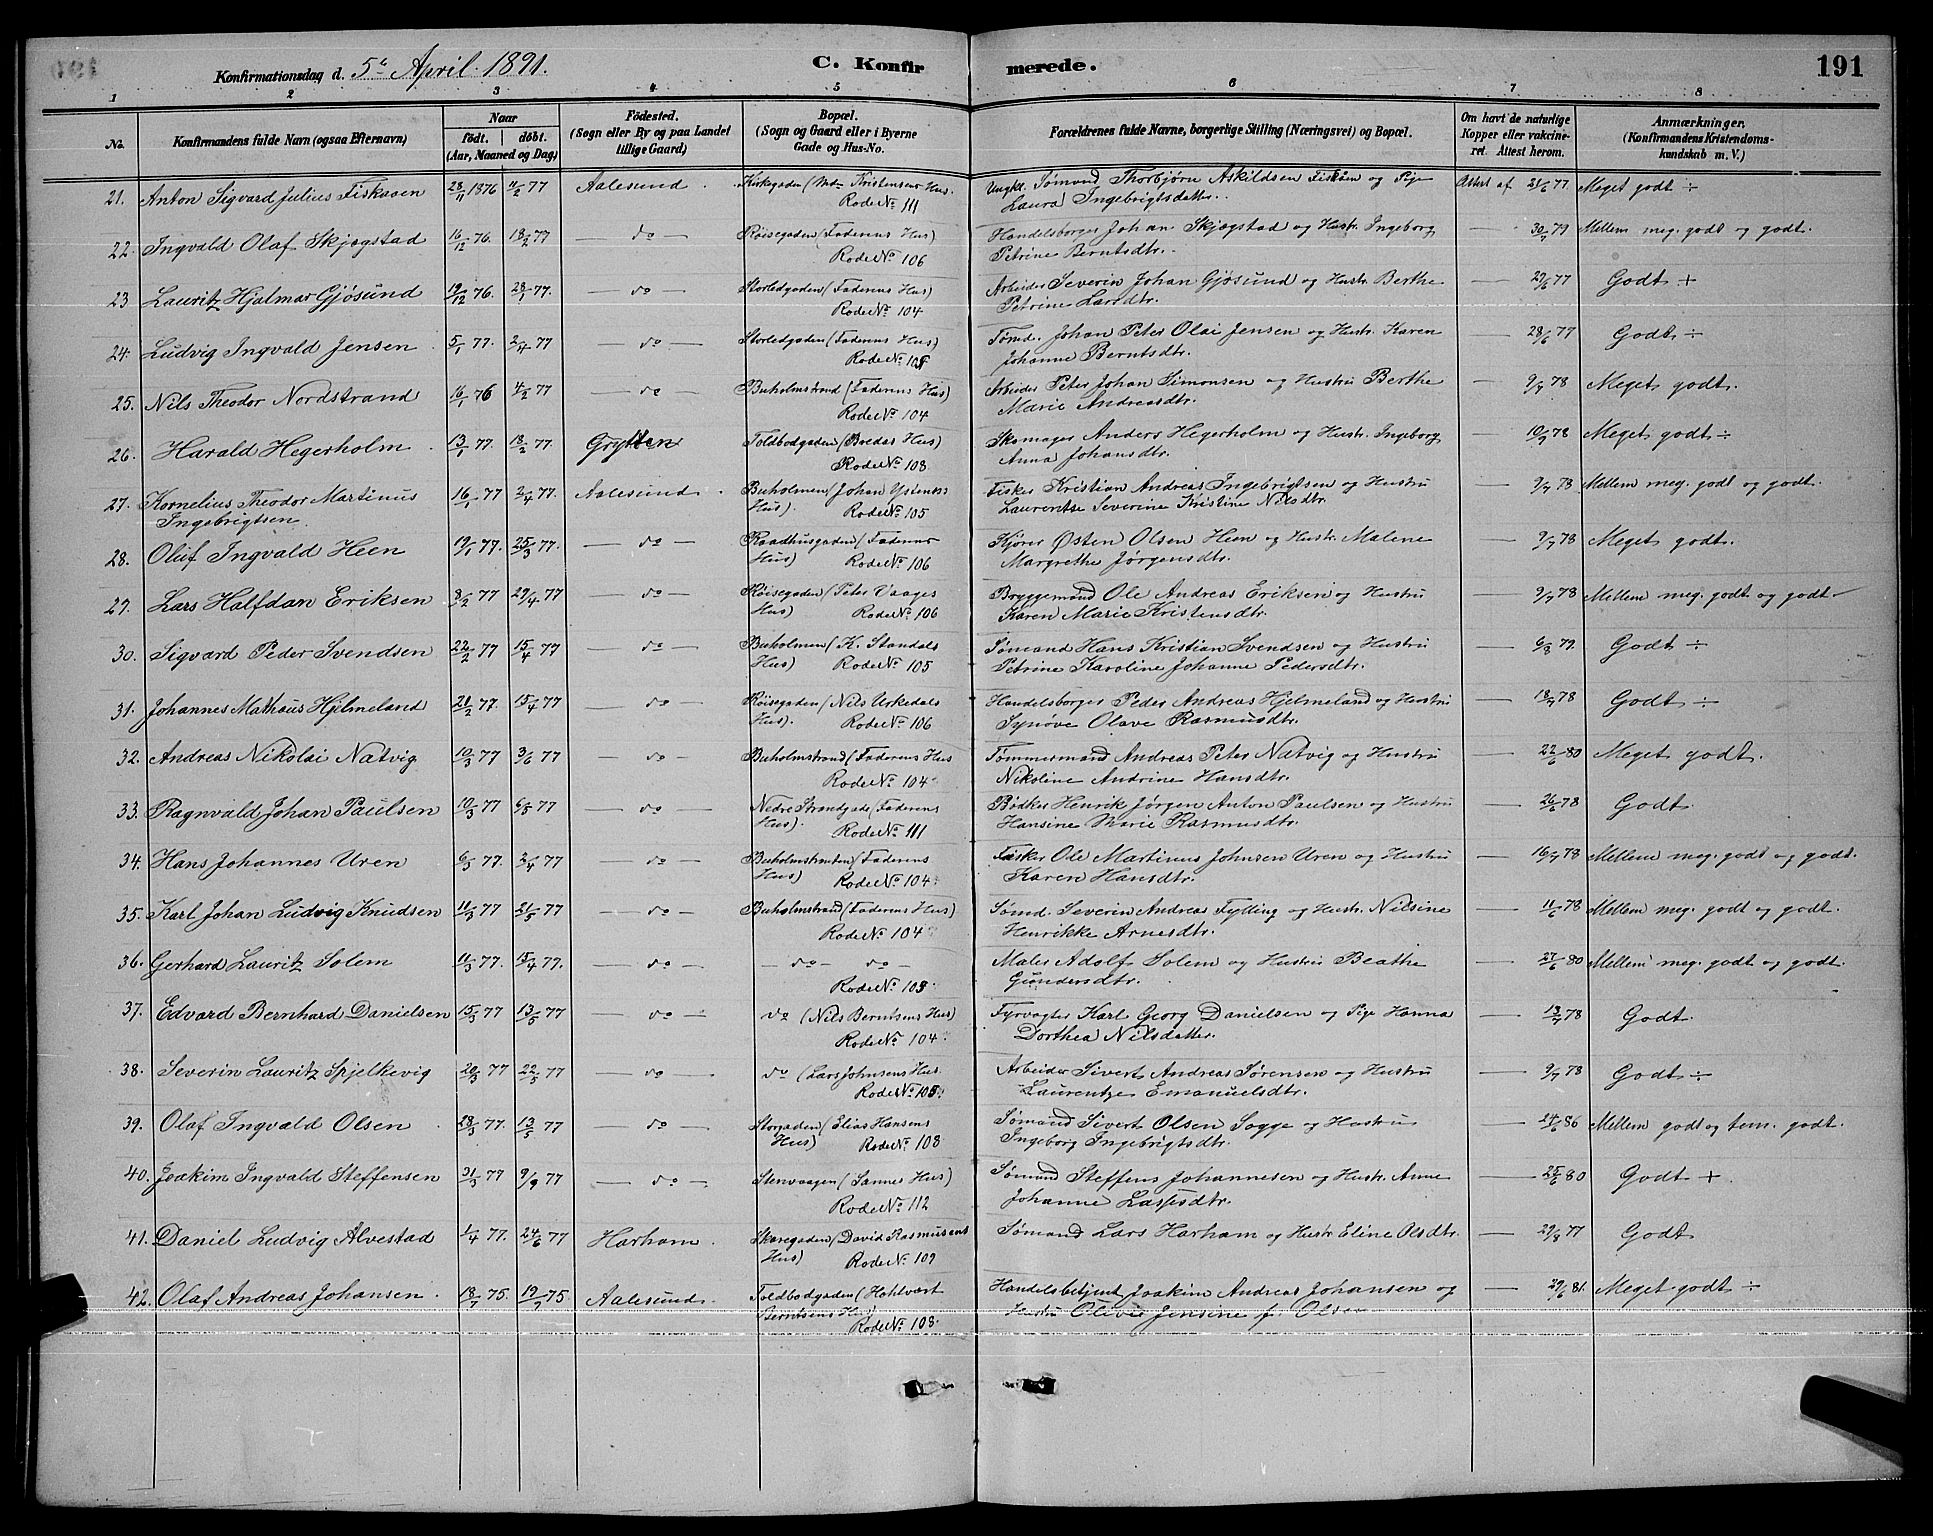 Konfirmationsdag d. 5te April 1891. C. Konfirmerede. 191
1 2 3 4 5 6 7 8
No. Konfirmandens fulde Navn (ogsaa Efternavn) Naar født. døbt. (Aar, Maaned og Dag) Fødested. (Sogn eller By og paa Landet tillige Gaard) Bopæl. (Sogn og Gaard eller i Byerne Gade og Hus-No. Forældrenes fulde Navne, borgerlige Stilling (Næringsvei) og Bopæl. Om havt de naturlige Kopper eller vakcineret. Attest herom. Anmærkninger, (Konfirmandens Kristendomskundskab m. V.)
21. Anton Sigvard Julius Fiskaaen 28/11 1876 11/2 77 Aalesund. Kirkegaden (Md. Kristensens Hus. Ungkl. Sømand Thorbjørn Askildsen Fiskaaen og Pige Attest af 21/6 77. Meget godt ÷
Rode No 111 Laura Ingebrigtsdatter.
22. Ingvald Olaf Skjøgstad 16/12 76. 18/2 77 — do — Røisegaden (Faderens Hus) Handelsborger Johan Skjøgstad og Hustr. Ingeborg — 30/7 79 Mellem meg. godt og godt.
Rode No 106 Petrine Berntsdtr.
23 Lauritz Hjalmar Gjøsund 19/12 76. 28/1 77. — do — Storledgaden (Faderens Hus) Arbeider Severin Johan Gjøsund og Hustr. Berthe — 29/6 77 Godt +
Rode No 104 Petrine Larsdtr.
24. Ludvig Ingvald Jensen 5/1 77. 2/4 77 — do — Storledgaden (Faderens Hus) Tømd. Johan Peter Olai Jensen og Hustr. Karen — 28/6 77 Godt ÷
Rode No 105 Johanne Berntsdtr.
25. Nils Theodor Nordstrand 16/1 76 4/2 77 — do — Buholmstrand (Faderens Hus) Arbeider Peter Johan Simonsen og Hustru Berthe — 9/7 78 Meget godt.
Rode No 104 Marie Andreasdtr.
26. Harald Hegerholm 13/1 77. 18/2 77. Grytten Toldbodgaden (Boedas Hus) Skomager Anders Hegerholm og Hustr. Ingeborg — 10/7 78 Meget godt ÷
Rode No 108 Anna Johansdtr.
27. Kornelius Theodor Martinus 16/1 77 2/4 77. Aalesund. Buholmen (Johan Ystenes Fisker Kristian Andreas Ingebrigtsen og Hustru — 9/7 78 Mellem meg. godt og godt.
Ingebrigtsen Hus). Rode No 105 Laurentze Severine Kristine Nilsdtr.
28. Oluf Ingvald Heen 19/1 77. 25/3 77. — do — Raadhusgaden (Faderens Kjører Østen Olsen Heen og Hustr. Malene — 9/7 78 Meget godt.
Hus) Rode No 106 Margrethe Jørgensdtr.
29. Lars Halfdan Eriksen 8/2 77 29/4 77 — do — Røisegaden (Peter Vaages Bryggemand Ole Andreas Eriksen og Hustru — 9/7 78 Mellem meg. godt og godt
Hus) Rode No 106 Karen Marie Kristensdtr.
30. Sigvard Peder Svendsen 22/2 77 15/4 77 — do — Buholmen (K. Standals Sømand Hans Kristian Svendsen og Hustru — 6/8 79. Godt ÷
Hus) Rode No 105 Petrine Karoline Johanne Pedersdtr.
31. Johannes Mathæus Hjelmeland 21/2 77. 15/4 77 — do — Røisegaden (Nils Urkedals Handelsborger Peder Andreas Hjelmeland og Hustru — 18/7 78 Godt ÷
Hus). Rode No 106 Synøve Olave Rasmusdtr.
32. Andreas Nikolai Natvig 10/3 77 3/6 77 — do — Buholmstrand (Faderens Hus Tømmermand Andreas Peter Natvig og Hustru — 22/6 80 Meget godt.
Rode No 104 Nikoline Andrine Hansdtr.
33. Ragnvald Johan Paulsen 10/3 77 6/5 77 — do — Nedre Strandgade (Faderens Bødker Henrik Jørgen Anton Paulsen og Hustru — 26/6 78 Godt
Hus). Rode No 111 Hansine Marie Rasmusdtr.
34. Hans Johannes Uren 6/3 77. 2/4 77 — do — Buholmstranden (Faderens Fisker Ole Martinus Johnsen Uren og Hustru — 16/7 78 Mellem meg. godt og godt.
Hus) Rode No 104 Karen Hansdtr.
35. Karl Johan Ludvig Knudsen 11/3 77 21/5 77 — do — Buholmstrand (Faderens Hus) Sømd. Severin Andreas Fylling og Hustr. Nilsine — 11/6 78 Mellem meg. godt og godt.
Rode No 104 Henrikke Arnesdtr.
36. Gerhard Lauritz Solem 11/3 77. 15/4 77. — do — — do — do — Maler Adolf Solem og Hustru Beathe — 27/6 80 Mellem meg. godt og godt.
Rode No 105 Gundersdtr.
37. Edvard Bernhard Danielsen 15/3 77 13/5 77 — do — do (Nils Berntsens Hus) Fyrvogter Karl Georg Danielsen og Pige Hanna — 13/7 78 Godt.
Rode No 104 Dorthea Nilsdatter.
38. Severin Lauritz Spjelkevig 20/3 77 22/5 77 — do — do (Lars Johnsens Hus. Arbeider Sivert Andreas Sørensen og Hustru — 9/7 78 Godt ÷
Rode No 105 Laurentze Emanuelsdtr.
39. Olaf Ingvald Olsen 23/3 77. 13/5 77 — do — Storgaden (Elias Hansens Sømand Sivert Olsen Sogge og Hustru — 24/6 86 Mellem godt og tem. godt.
Hus) Rode No 108 Ingeborg Ingebrigtsdtr.
40. Joakim Ingvald Steffensen 31/3 77 9/9 77 — do — Stenvaagen (Sannes Hus) Sømand Steffens Johannesen og Hustr. Anne — 25/6 80 Godt +
Rode No 112 Johanne Larsdtr.
41. Daniel Ludvig Alvestad 1/4 77. 24/6 77 Harham. Skaregaden (David Rasmusens Sømand Lars Harham og Hustr. Eline Olsdtr. — 29/8 77 Godt
Hus) Rode No 109
42. Olaf Andreas Johansen 18/7 75. 19/9 75 Aalesund. Toldbodgaden (Hahlvart Handelsbetjent Joakim Andreas Johansen og — 29/6 81. Meget godt ÷
Berntsens Hus) Hustru Olivie Jensine f. Olsen
Rode No 108.